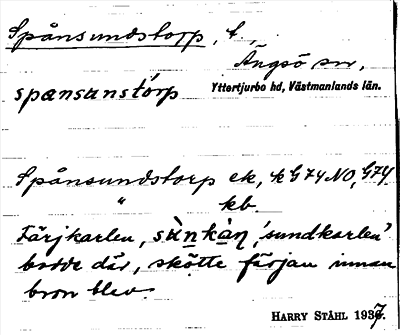 Spånsundstorp, t.,
Ängsö sn,
spansunstórp
Yttertjurbo hd, Västmanlands län.
Spånsundstorp ek, k G74 NO, G74
" kb.
Färjkarlen, sùnkàn, 'sundkarlen'
bodde där, skötte färjan innan
bron blev.
HARRY STÅHL 1937.